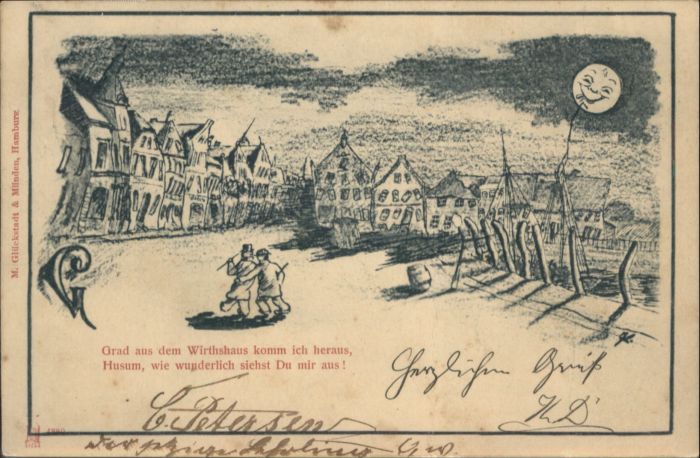 M. Glückstadt & Münden, Hamburg
Grad aus dem Wirthshaus komm ich heraus,
Husum, wie wunderlich siehst Du mir aus!
Herzlichen Gruß
C. Petersen